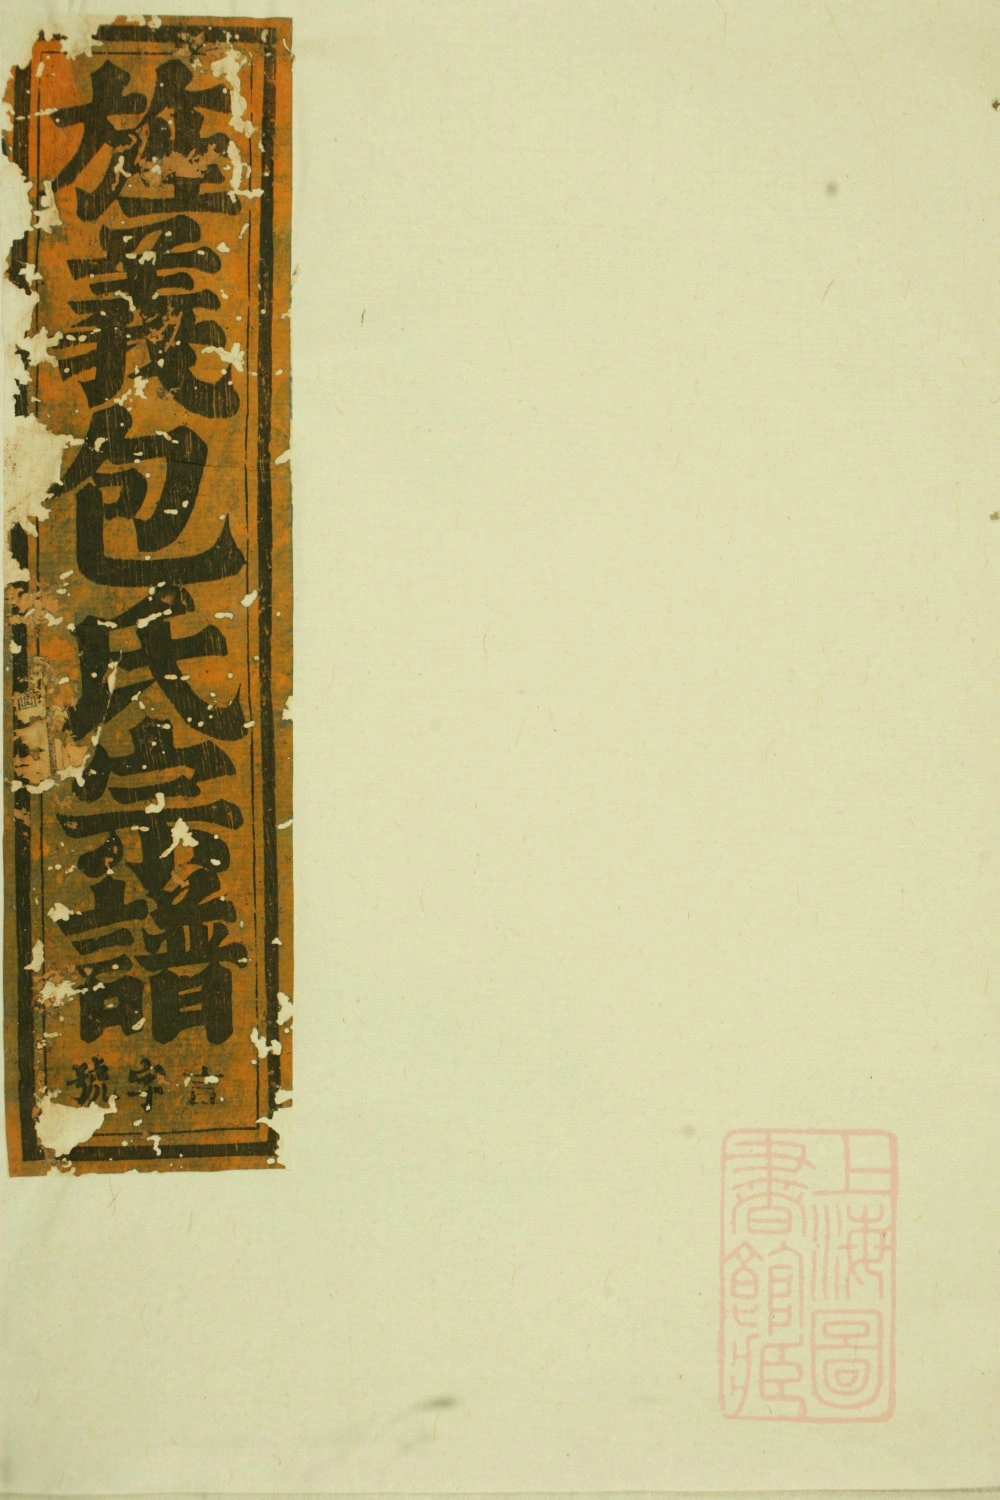 旌義包氏宗譜
字號
上海圖
書館藏